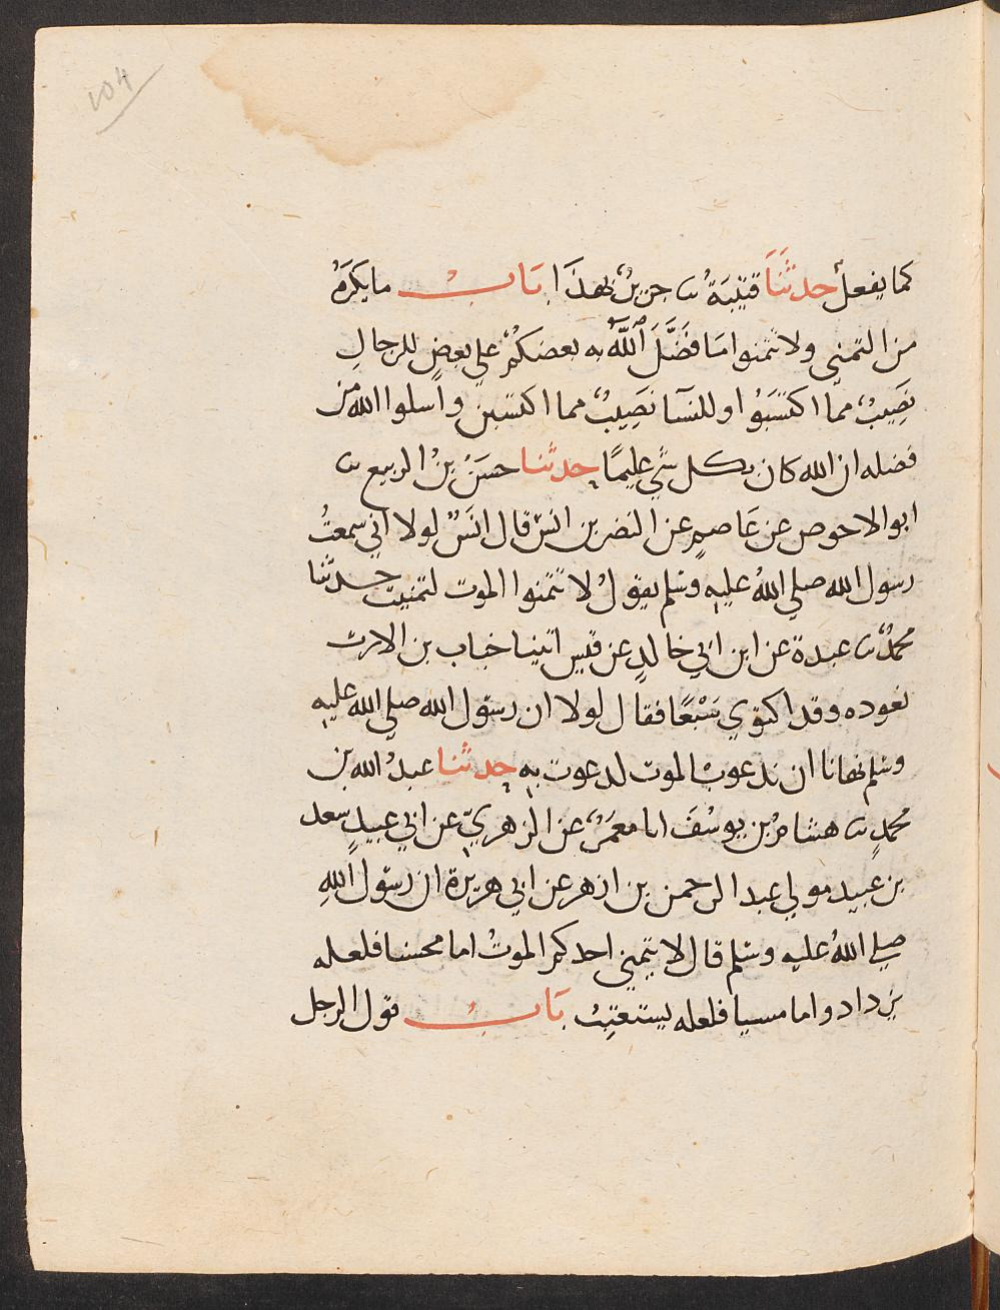 104
كما يفعل حدثنا قتيبة ثنا جرير بهذا باب ما يكره
من التمني ولا تتمنوا ما فضل الله به بعضكم علي بعض للرجال
نصيب مما اكتسبوا وللنسآ نصيب مما اكتسبن واسلوا الله من
فضله ان الله كان بكل شي عليما حدثنا حسن بن الربيع ثنا
ابو الاحوص عن عاصم عن النضر بن انس قال انس لولا اني سمعت
رسول الله صلي الله عليه وسلم يقول لا تتمنوا الموت لتمنيت حدثنا
محمد ثنا عبدة عن ابن ابي خالد عن قيس اتينا خباب بن الارت
نعوده وقد اكتوي سبعا فقال لولا ان رسول الله صلي الله عليه
وسلم نهانا ان ندعو بالموت لدعوت به حدثنا عبد الله بن
محمد ثنا هشام بن يوسف انا معمر عن الزهري عن ابي عبيد سعد
بن عبيد مولي عبد الرحمن بن ازهر عن ابي هريرة ان رسول الله
صلي الله عليه وسلم قال لا يتمني احدكم الموت اما محسنا فلعله
يزداد واما مسيا فلعله يستعتب باب قول الرجل